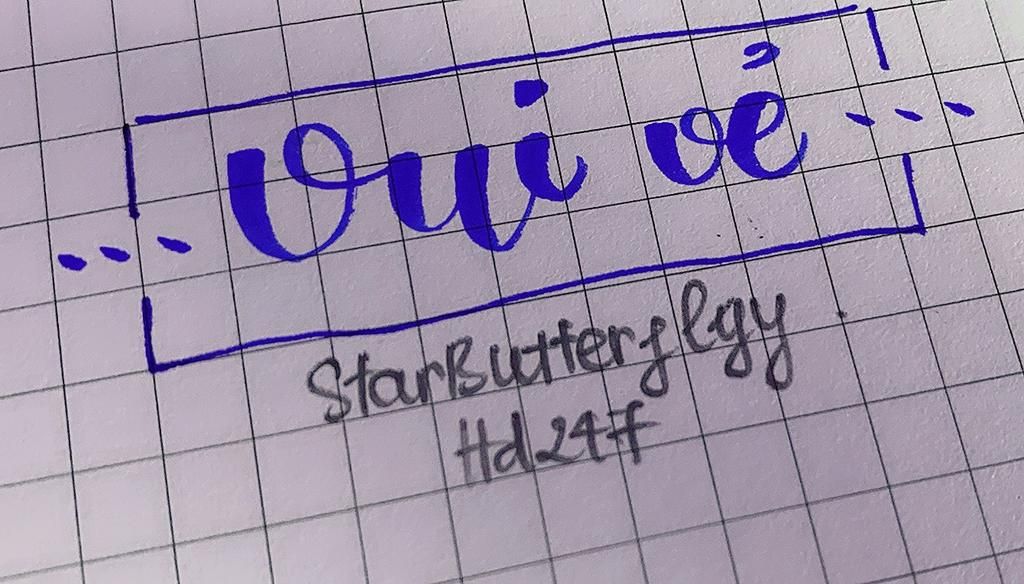 ... Vui vẻ ...
StarButterflgy
Hd247